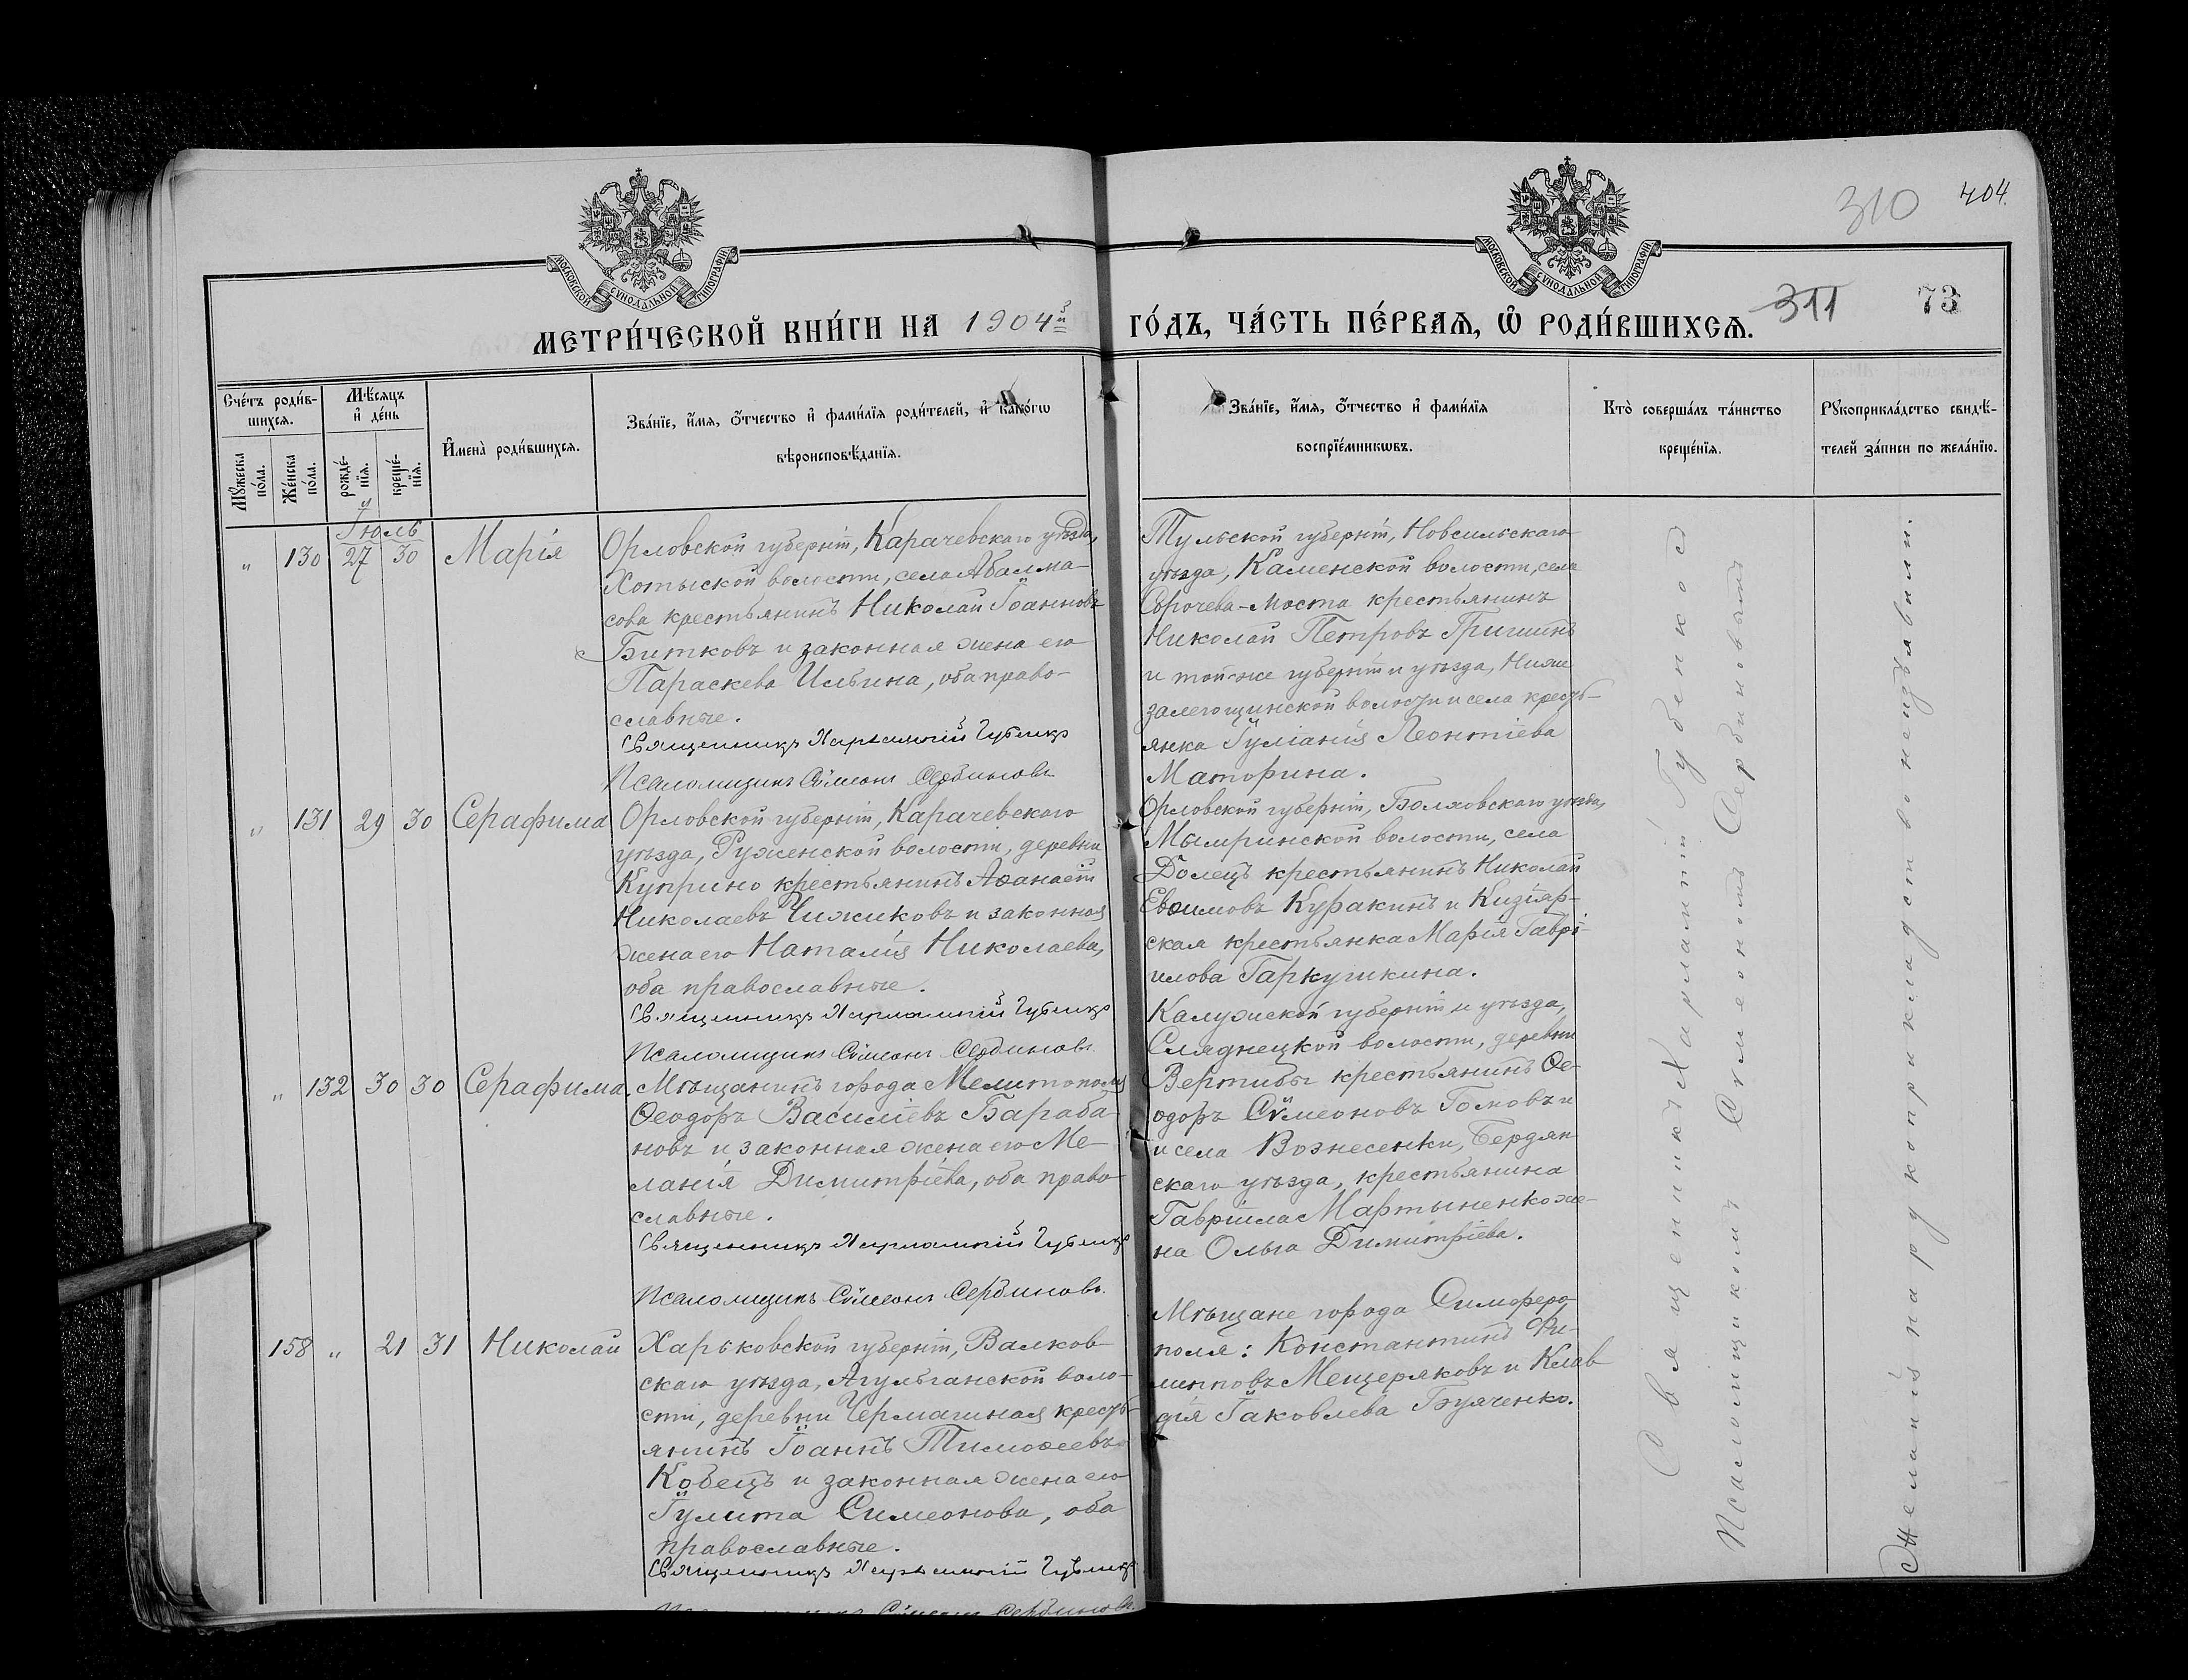 МОСКОВСКОЙ СѴНОДАЛЬНОЙ ТИПОГРАФІИ
МОСКОВСКОЙ СѴНОДАЛЬНОЙ ТИПОГРАФІИ
310 404.
МЕТРИ́ЧЕСКОЙ КНИ́ГИ НА 1904й
ГО́ДЪ, ЧА́СТЬ ПЕ́РВАѦ, Ѡ҆ РОДИ́ВШИХСѦ.
311 73
Сче́тъ роди́в-
шихсѧ.
Мѣ́сѧцъ
и҆ де́нь
Мꙋ́жеска
по́ла.
Же́нска
по́ла.
рожде́-
нїѧ.
креще́-
нїѧ.
И҆мена̀ роди́вшихсѧ.
Зва́нїе, и҆́мѧ, ѻ҆́тчество и҆ фами́лїѧ роди́телей, и҆ како́гѡ
вѣроисповѣ́данїѧ.
Зва́нїе, и҆́мѧ, ѻ҆́тчество и҆ фами́лїѧ
воспрїе́мникѡвъ.
Кто̀ соверша́лъ та́инство
креще́нїѧ.
Рꙋкоприкла́дство свидѣ́-
телей за́писи по жела́нїю.
Іюль
" 130 27 30 Марія
Орловской губерніи, Карачевскаго уѣзда,
Хотыской волости, села Абалма-
сова крестьянинъ Николай Іоанновъ
Битковъ и законная жена его
Параскева Ильина, оба право-
славные.
Священникъ Харлампій Губенко
Псаломщикъ Сѵмеонъ Сербиновъ
Тульской губерніи, Новсильскаго
уѣзда, Каменской волости, села
Сорочева-Моста крестьянинъ
Николай Петровъ Гришинъ
и той-же губерніи и уѣзда, Ниже
залегощинской волости и села кресть-
янка Іуліанія Леонтіева
Маторина.
" 131 29 30 Серафима
Орловской губерніи, Карачевскаго
уѣзда, Руженской волости, деревни
Куприно крестьянинъ Аѳанасій
Николаевъ Чижиковъ и законная
жена его Наталія Николаева,
оба православные.
Священникъ Харлампій Губенко
Псаломщикъ Сѵмеонъ Сербиновъ
Орловской губерніи, Болховскаго уѣзда,
Мымринской волости, села
Долецъ крестьянинъ Николай
Евѳимовъ Куракинъ и Кизіяр-
ская крестьянка Марія Гаврі-
илова Гаркушкина.
" 132 30 30 Серафима.
Мѣщанинъ города Мелитополя
Ѳеодоръ Василіевъ Бараба-
новъ и законная жена его Ме-
ланія Димитріева, оба право-
славные.
Священникъ Харлампій Губенко
Псаломщикъ Сѵмеонъ Сербиновъ.
Калужской губерніи и уѣзда,
Сляднецкой волости, деревни
Вертибы крестьянинъ Ѳе-
одоръ Сѵмеоновъ Гомовъ и
и села Вознесенки, Бердян-
скаго уѣзда, крестьянина
Гавріила Мартыненко же-
на Ольга Димитріева.
158 " 21 31 Николай
Харьковской губерніи, Валков-
скаго уѣзда, Агульганской воло-
сти, деревни кресть-
янинъ Іоаннъ Тимоѳеевъ
Кобецъ и законная жена его
Іулита Симеонова, оба
православные.
Священникъ Харлампій Губенко
Сѵмеонъ Сербиновъ.
Мѣщане города Симферо-
поля: Константинъ Фи-
липповъ Мещеряковъ и Клав-
дія Іаковлева Буяченко.
Священникъ Харлампій Губенко съ
Псаломщикомъ Сѵмеономъ Сербиновымъ
Желанія на рукоприкладство не изъявили.